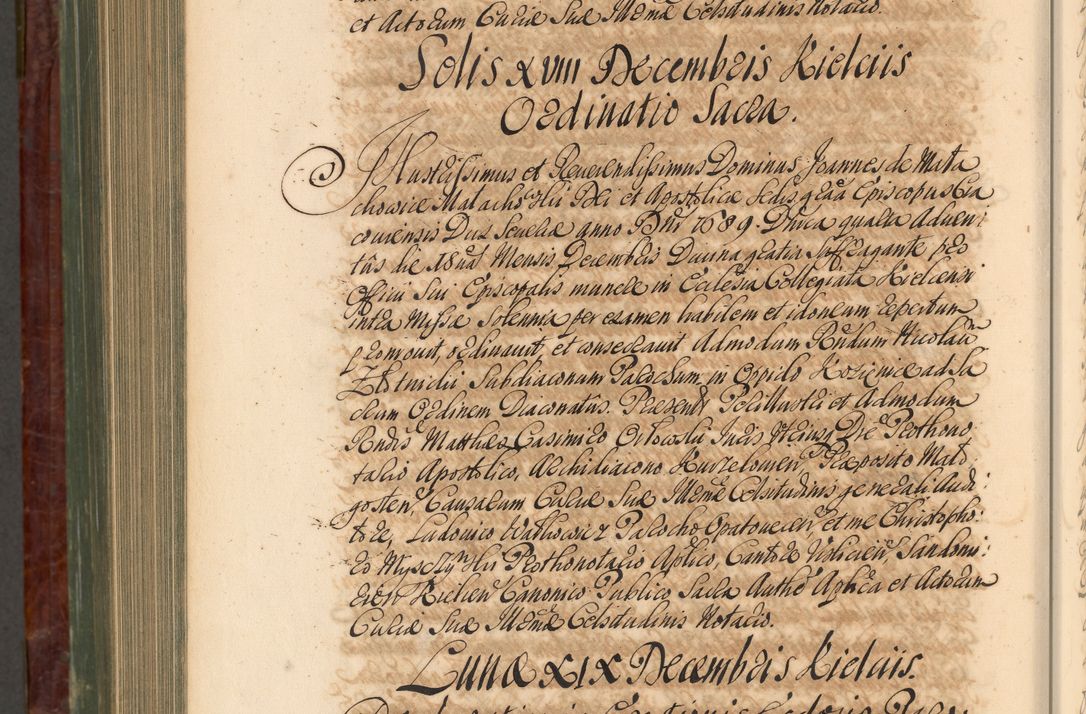 et Actorum Curiæ Suæ Illmæ Celsitudinis Notario.
Solis XVIII Decembris Kielciis
Ordinatio Sacra.
Illustrissimus et Reverendissimus Dominus Joannes de Mała
chowice Małachowskii Dei et Apostolicæ Sedis grãa Episcopus Cra
coviensis Dux Severiæ anno Dni 1689. Dnica quarta Adven:
tûs die 18va Mensis Decembris Divina gratia suffragante pro
Officii Sui Episcopalis munere in Ecclesia Collegiata Kielcensi
intra Missar Solemnia per examen habilem et idoneum repertum
promovit, ordinavit, et consecravit Admodum Rndum Nicolaum
Subdiaconum Parochum in Oppido Kozienice ad Sa
crum Ordinem Diaconatus. Præsentibus Perillustri et Admodum
Rndis Matthæo Casimiro Orłowski Juris Utriusq Dre Prothono
tario Apostolico, Archidiacono Kurzelowien Præposito Mało
gosten Causarum Curiæ Suæ Illmæ Celsitudinis generali Audi:
tore, Ludovico Parocho Opatovecen, et me Christopho:
ro Myszynskii Prothonotario Aplico, Cantore Vislicien, Sandomi:
rien Kielcen Canonico Publico Sacra Authe Aplica et Actorum
Curiæ Suæ Illmæ Celsitudinis Notario.
Lunæ XIX Decembris Kielciis.